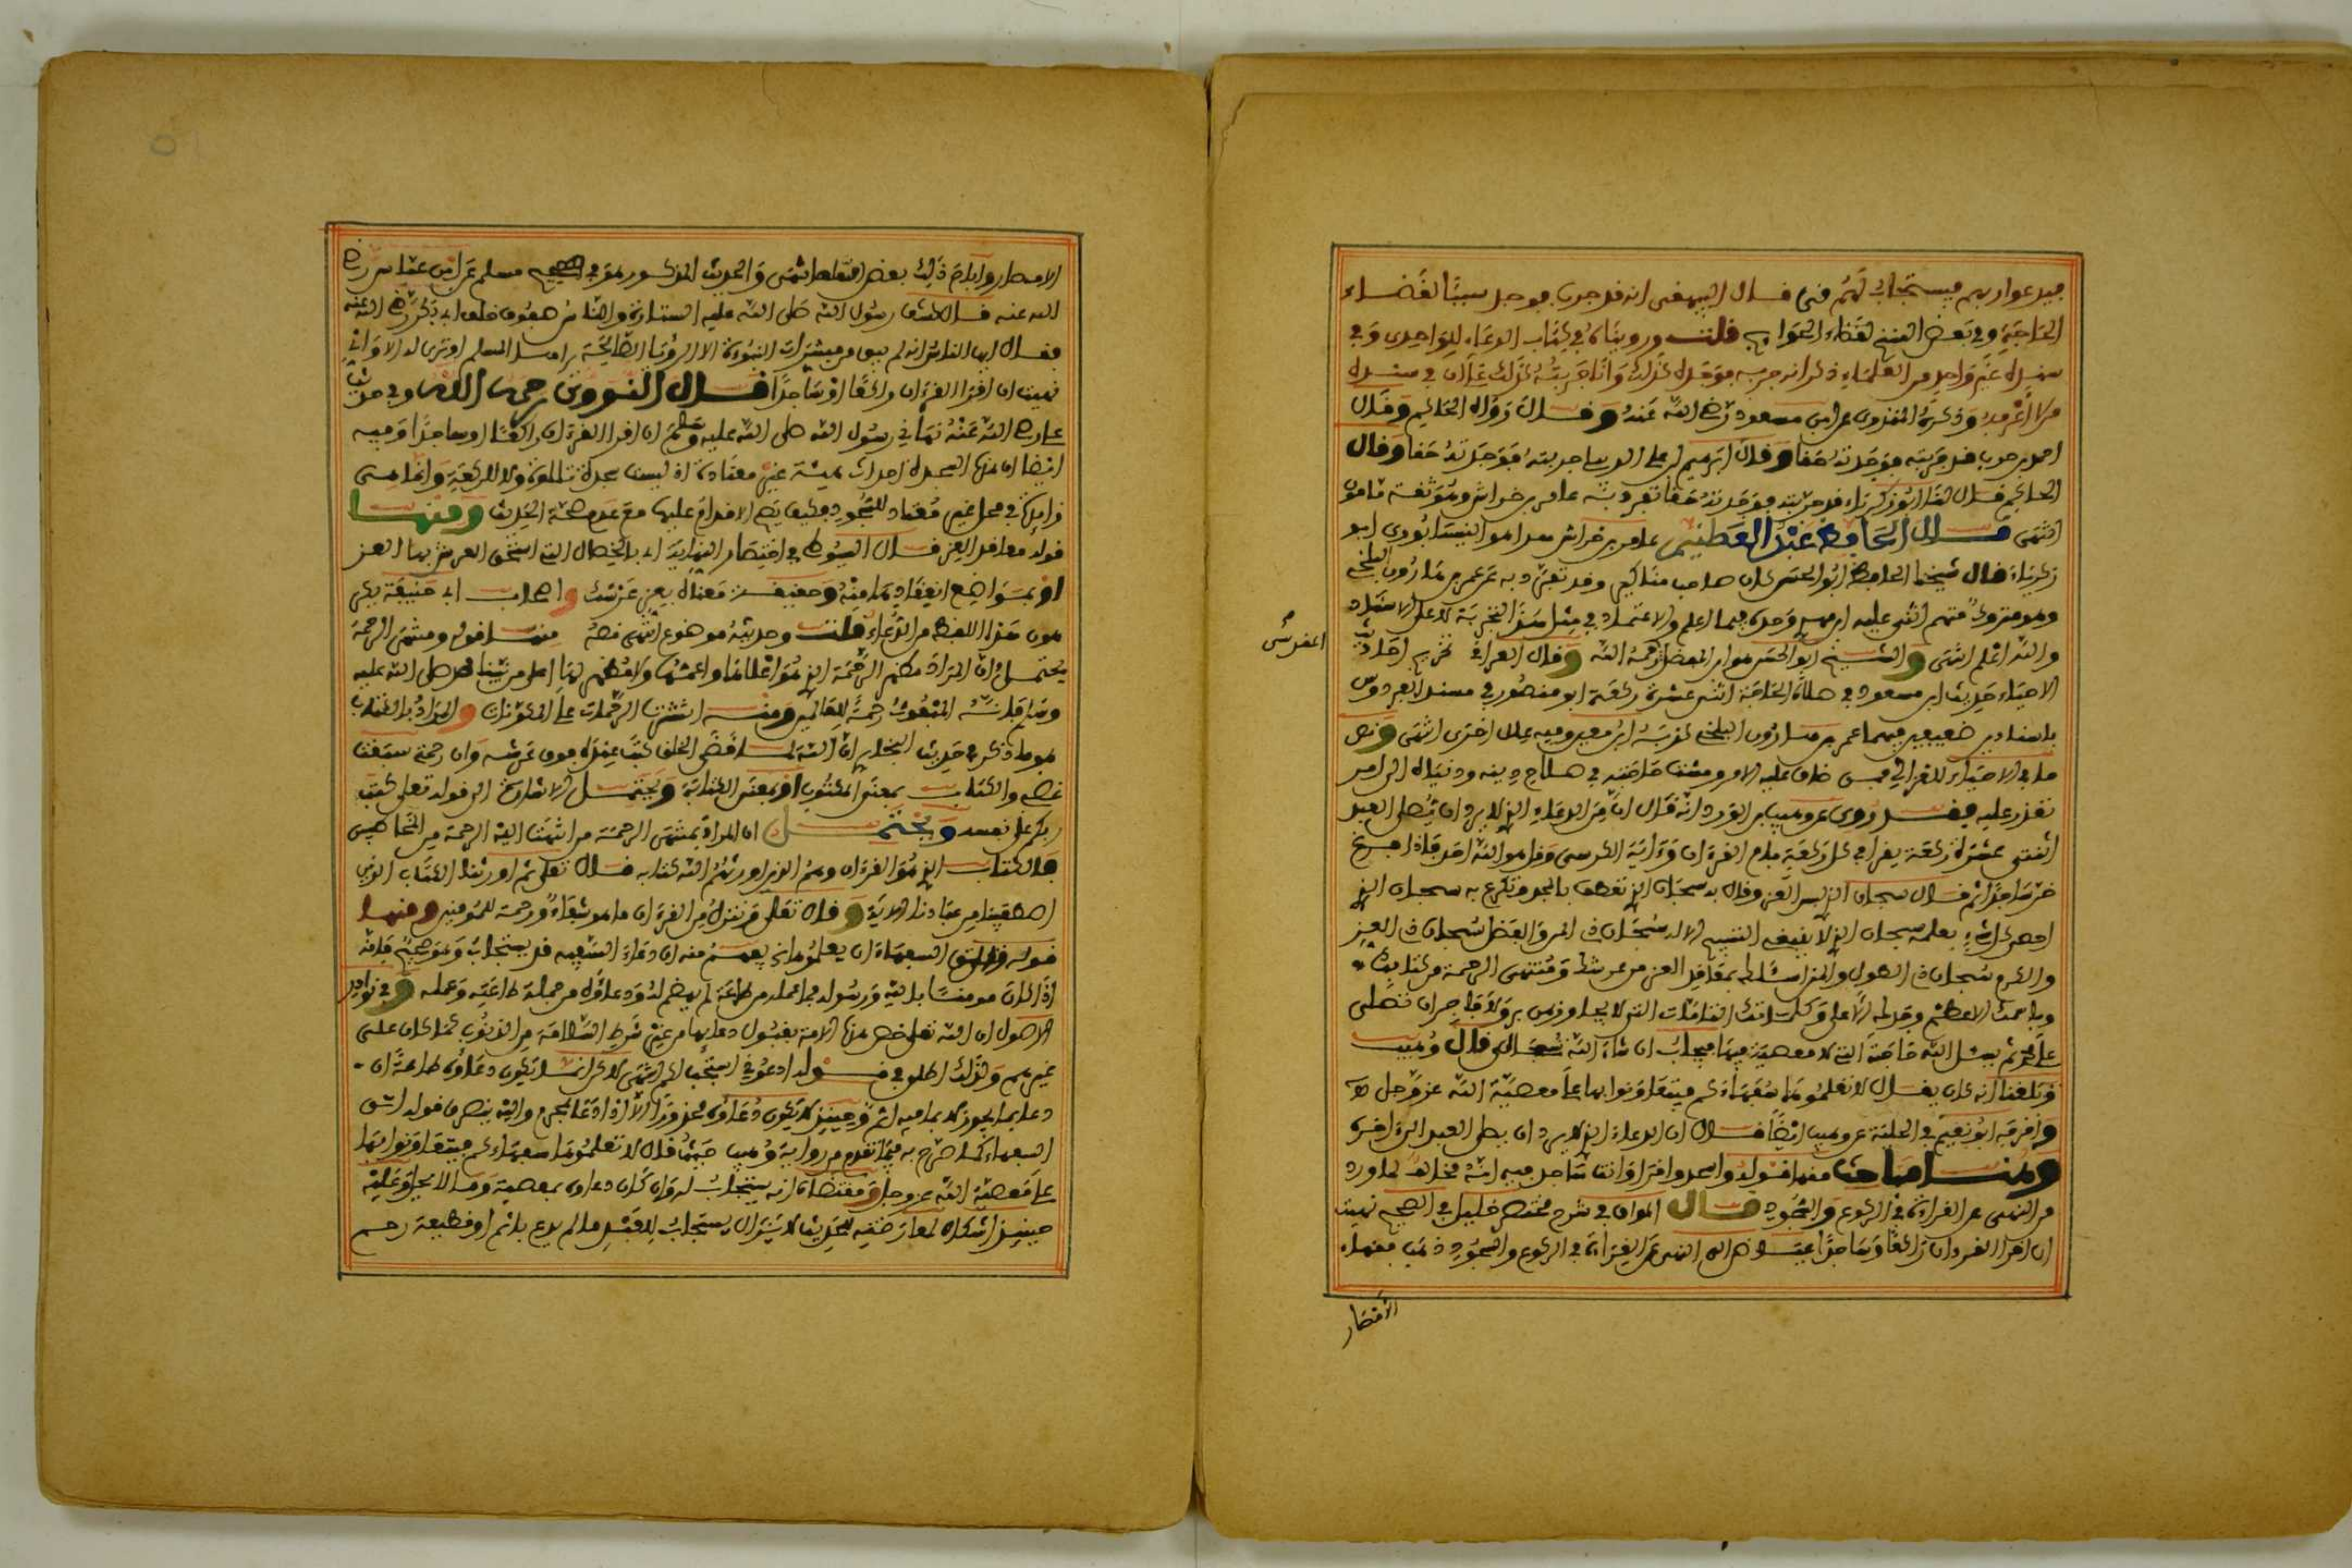 فيدعوا ربهم فيستجاب لهم فنى قال البيهقي انه قد جرب فوجد سببا لقضاء
الحاجة وفي بعض النسخ لقضاء الحوايج قلت ورويناه في كتاب الدعاء للواحدي وفي
سنده غير واحد من العلماء ذكر انه جربه فوجده كذلك وانا جربته كذلك على ان في سنده
من لا اعرفه وذكره المنذري عن ابن مسعود رضي الله عنه وقال رواه الحاكم وقال
احمد بن حرب قد جربته فوجدته حقا وقال ابراهيم بن علي الديبلي جربته فوجدته حقا وقال
الحاكم قال لنا ابو زكرياء قد جربته فوجدته حقا تفرد به عامر بن خراش وهو ثقة مامون
انتهى قال الحافظ عبد العظيم عامر بن خراش هذا هو النيسابوري ابو
زكرياء قال شيخنا الحافظ ابو الحسن كان صاحب مناكير وقد تفرد به عن عمر بن هارون البلخي
وهو متروك متهم اثنى عليه ابن مهدي وحده فيما اعلم والاعتماد في مثل هذا التجربة لا على الاسناد
والله اعلم انتهى والشيخ ابو الحسن هو ابن المفضل رحمه الله وقال العراقي في تخريج احاديث
المقدسي
الاحياء حديث ابن مسعود في صلاة الحاجة اثنتي عشرة ركعة ابو منصور في مسند الفردوس
باسنادين ضعيفين فيهما عمر بن هارون البلخي كذبه ابن معين وفيه علل اخرى انتهى ونص
ما في الاحياء للغزالي فمن ضاق عليه الامر ومست حاجته في صلاح دينه ودنياه الى امر
تعذر عليه فقد روى عن وهيب بن الورد انه قال ان من الدعاء الذي لا يرد ان يصلي العبد
اثنتي عشرة ركعة يقرا في كل ركعة بام القرءان وءاية الكرسي وقل هو الله احد فاذا فرغ
خر ساجدا ثم قال سبحان الذي لبس العز وقال به سبحان الذي تعطف بالمجد وتكرم به سبحان الذي
احصى كل شيء بعلمه سبحان الذي لا ينبغي التسبيح الا له سبحان ذي المن والفضل سبحان ذي العز
والكرم سبحان ذي الطول والمن اسئلك بمعاقد العز من عرشك ومنتهى الرحمة من كتابك
وباسمك الاعظم وجدك الاعلى وكلماتك التامات التي لا يجاوزهن بر ولا فاجر ان تصلي
على محمد ثم يسئل الله حاجته التي لا معصية فيها فيجاب ان شاء الله سبحانه قال وهيب
وبلغنا انه كان يقال لا تعلموها سفهاءكم فيتعاونوا بها على معصية الله عز وجل
واخرجه ابو نعيم في الحلية عن وهيب ايضا قال ان الدعاء الذي لا يرد ان يصلي العبد الى اخره
وهنا مباحث منها قوله واسجد واقرا وانت ساجد فيه انه مخالف لما ورد
من النهي عن القراءة في الركوع والسجود قال المواق في شرح مختصر خليل في الصحيح نهيت
ان اقرا القرءان راكعا وساجدا عياض الى النهي عن القراءة في الركوع والسجود ذهب فقهاء
الامصار
الامصار واباح ذلك بعض السلف انتهى والحديث المذكور هو في صحيح مسلم عن ابن عباس رضي
الله عنه قال كشف رسول الله صلى الله عليه الستارة والناس صفوف خلف ابي بكر رضي الله عنه
فقال ايها الناس انه لم يبق من مبشرات النبوءة الا الرؤيا الصالحة يراها المسلم او ترى له الا واني
نهيت ان اقرا القرءان راكعا او ساجدا قال النووي رحمه الله وفي حديث
علي رضي الله عنه نهاني رسول الله صلى الله عليه وسلم ان اقرا القرءان راكعا او ساجدا وفيه
ايضا ان هذه السجدة احداث هيئة غير معتادة اذ ليست سجدة تلاوة ولا للركعة وانما هي
زايدة في محل غير معتاد للسجود فكيف يصح الاقدام عليها مع عدم صحة الحديث ومنها
قوله معاقد العز قال السيوطي في اختصار النهاية اي بالخصال التي استحق العرش بها العز
او بمواضع انعقادها منه وحقيقة معناه بعز عرشك واصحاب ابي حنيفة يكرهون
هذا اللفظ من الدعاء قلت وحديثه موضوع انتهى نصه منها قوله ومنتهى الرحمة
يحتمل ان المراد مكنز الرحمة الذي هو اعلاها واعمها ولا مظهر لها اعلى من نبينا محمد صلى الله عليه
وسلم لانه المبعوث رحمة للعالمين ومنه انتشرت الرحمات على المكونات والمراد بالكتاب
هو ما ذكر في حديث البخاري ان الله لما قضى الخلق كتب عنده فوق عرشه وان رحمتي سبقت
غضبي والكتاب بمعنى المكتوب او بمعنى الكتابة ويحتمل الاشارة الى قوله تعلى كتب
ربكم على نفسه ويحتمل ان المراد بمنتهى الرحمة من انتهت اليه الرحمة من
والكتاب الذي هو القرءان وهم الذين اورثهم الله كتابه قال تعلى ثم اورثنا الكتاب الذين
اصطفينا من عبادنا الاية وقال تعلى وننزل من القرءان ما هو شفاء ورحمة للمومنين ومنها
قوله السفهاء ان يعلموها يفهم منه ان دعاء السفيه قد يستجاب وهو صحيح لانه
اذا كان مومنا بالله ورسوله فما عمله من طاعة لم يضع له ودعاؤه من جملة طاعته وعمله وفي نوادر
الاصول ان الله تعلى خص هذه الامة بقبول دعايها من غير شرط السلامة من الذنوب كما كان على
غيرهم ولذلك اطلق في قوله ادعوني استجب لكم انتهى لاكن انما يكون دعاؤه طاعة ان
دعا بما يجوز لا بما فيه اثم وحينئذ لا يكون دعاؤه محذورا الا اذا دعا لمحرم واليه ينصرف قوله
السفهاء كما صرح به فيما تقدم من رواية وهيب حيث قال لا تعلموها سفهاءكم فيتعاونوا بها
على معصية الله عز وجل ومقتضاه انه يستجاب له وان كان دعاؤه بمعصية وما لا يجوز وعليه
حينئذ اشكال لمعارضته لحديث لا يزال يستجاب للعبد ما لم يدع باثم او قطيعة رحم